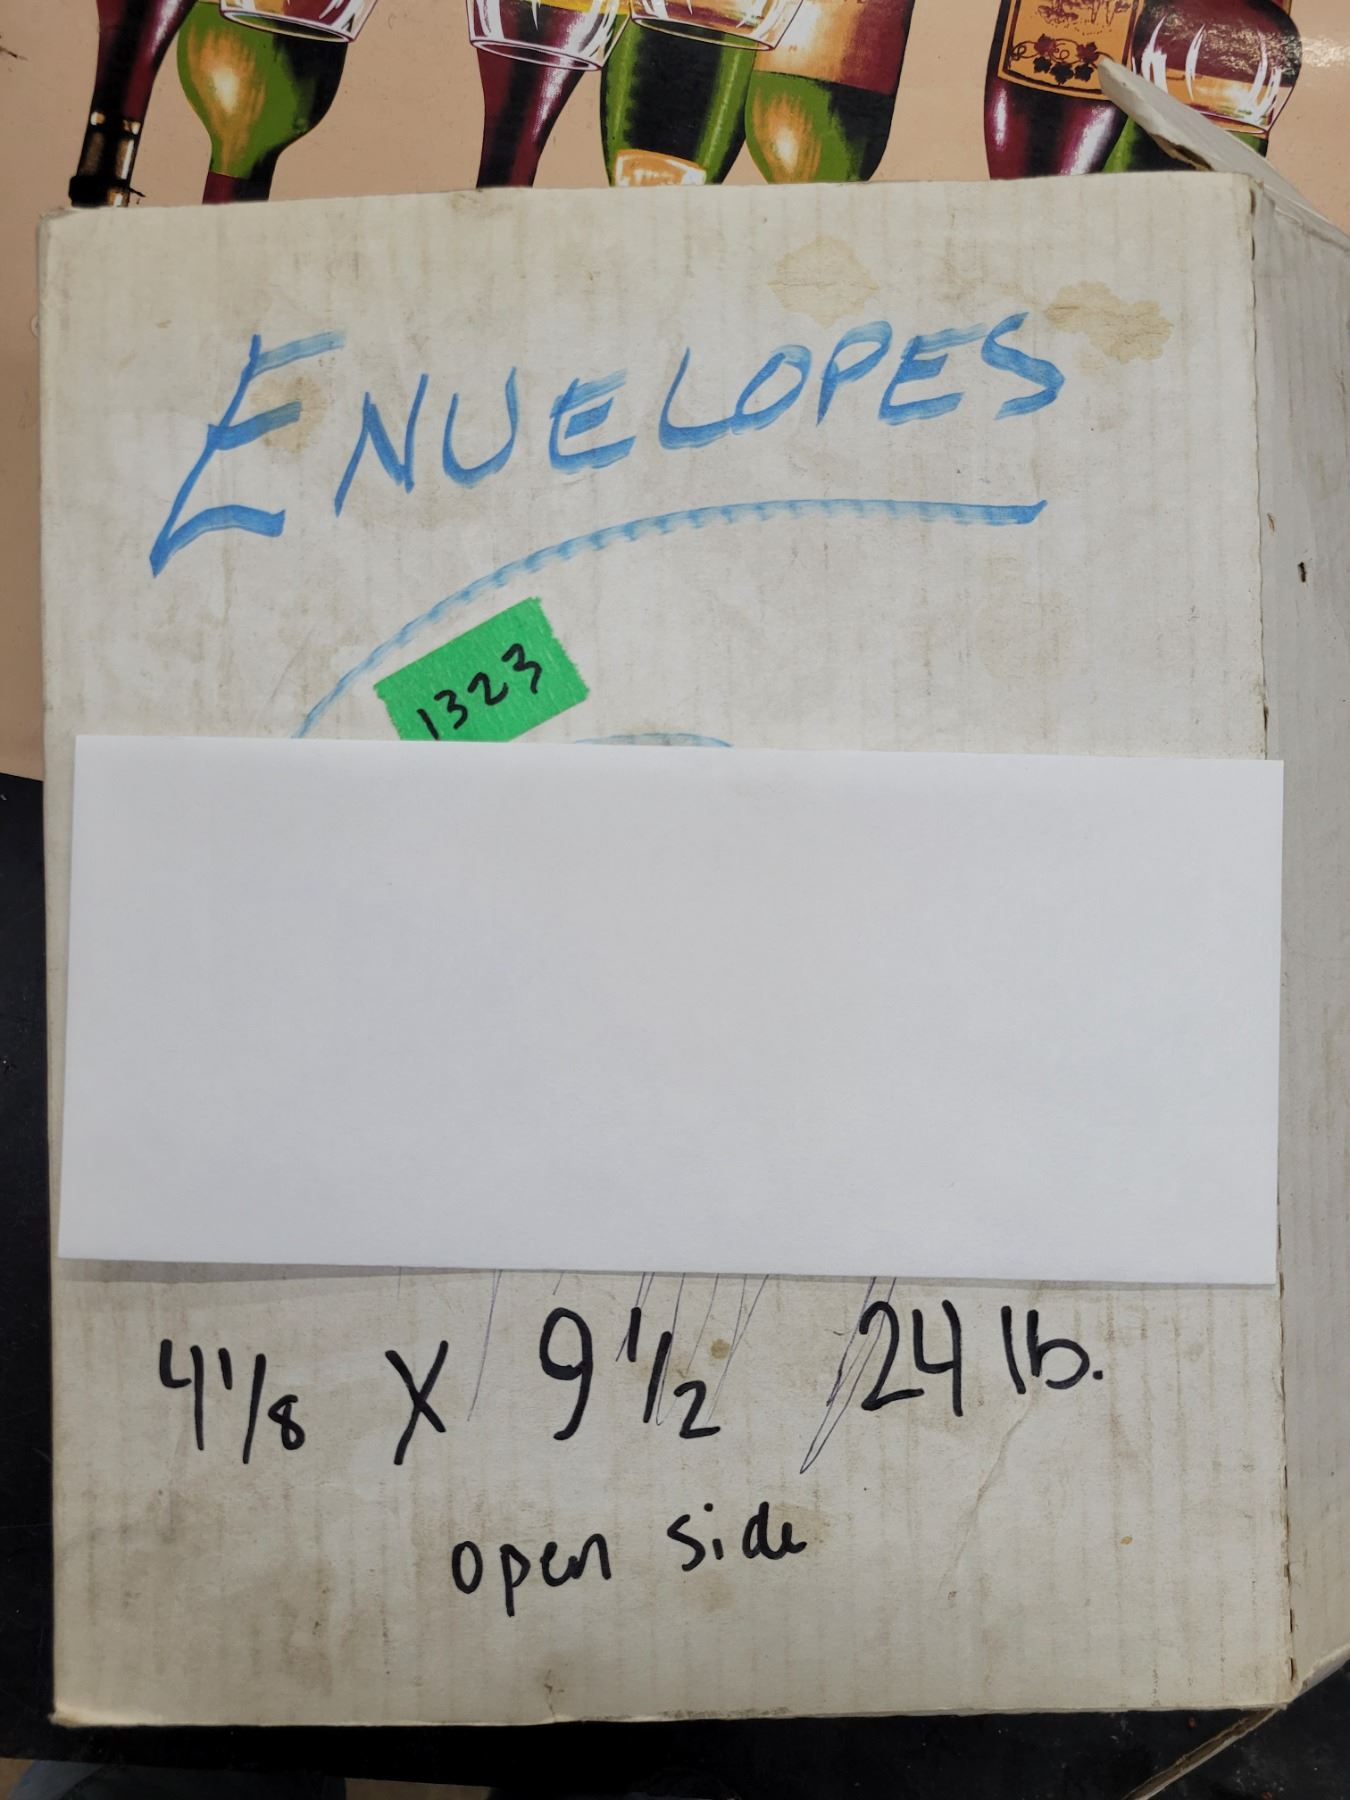 ENVELOPES
1323
4 1/8 X 9 1/2 24 lb.
open side